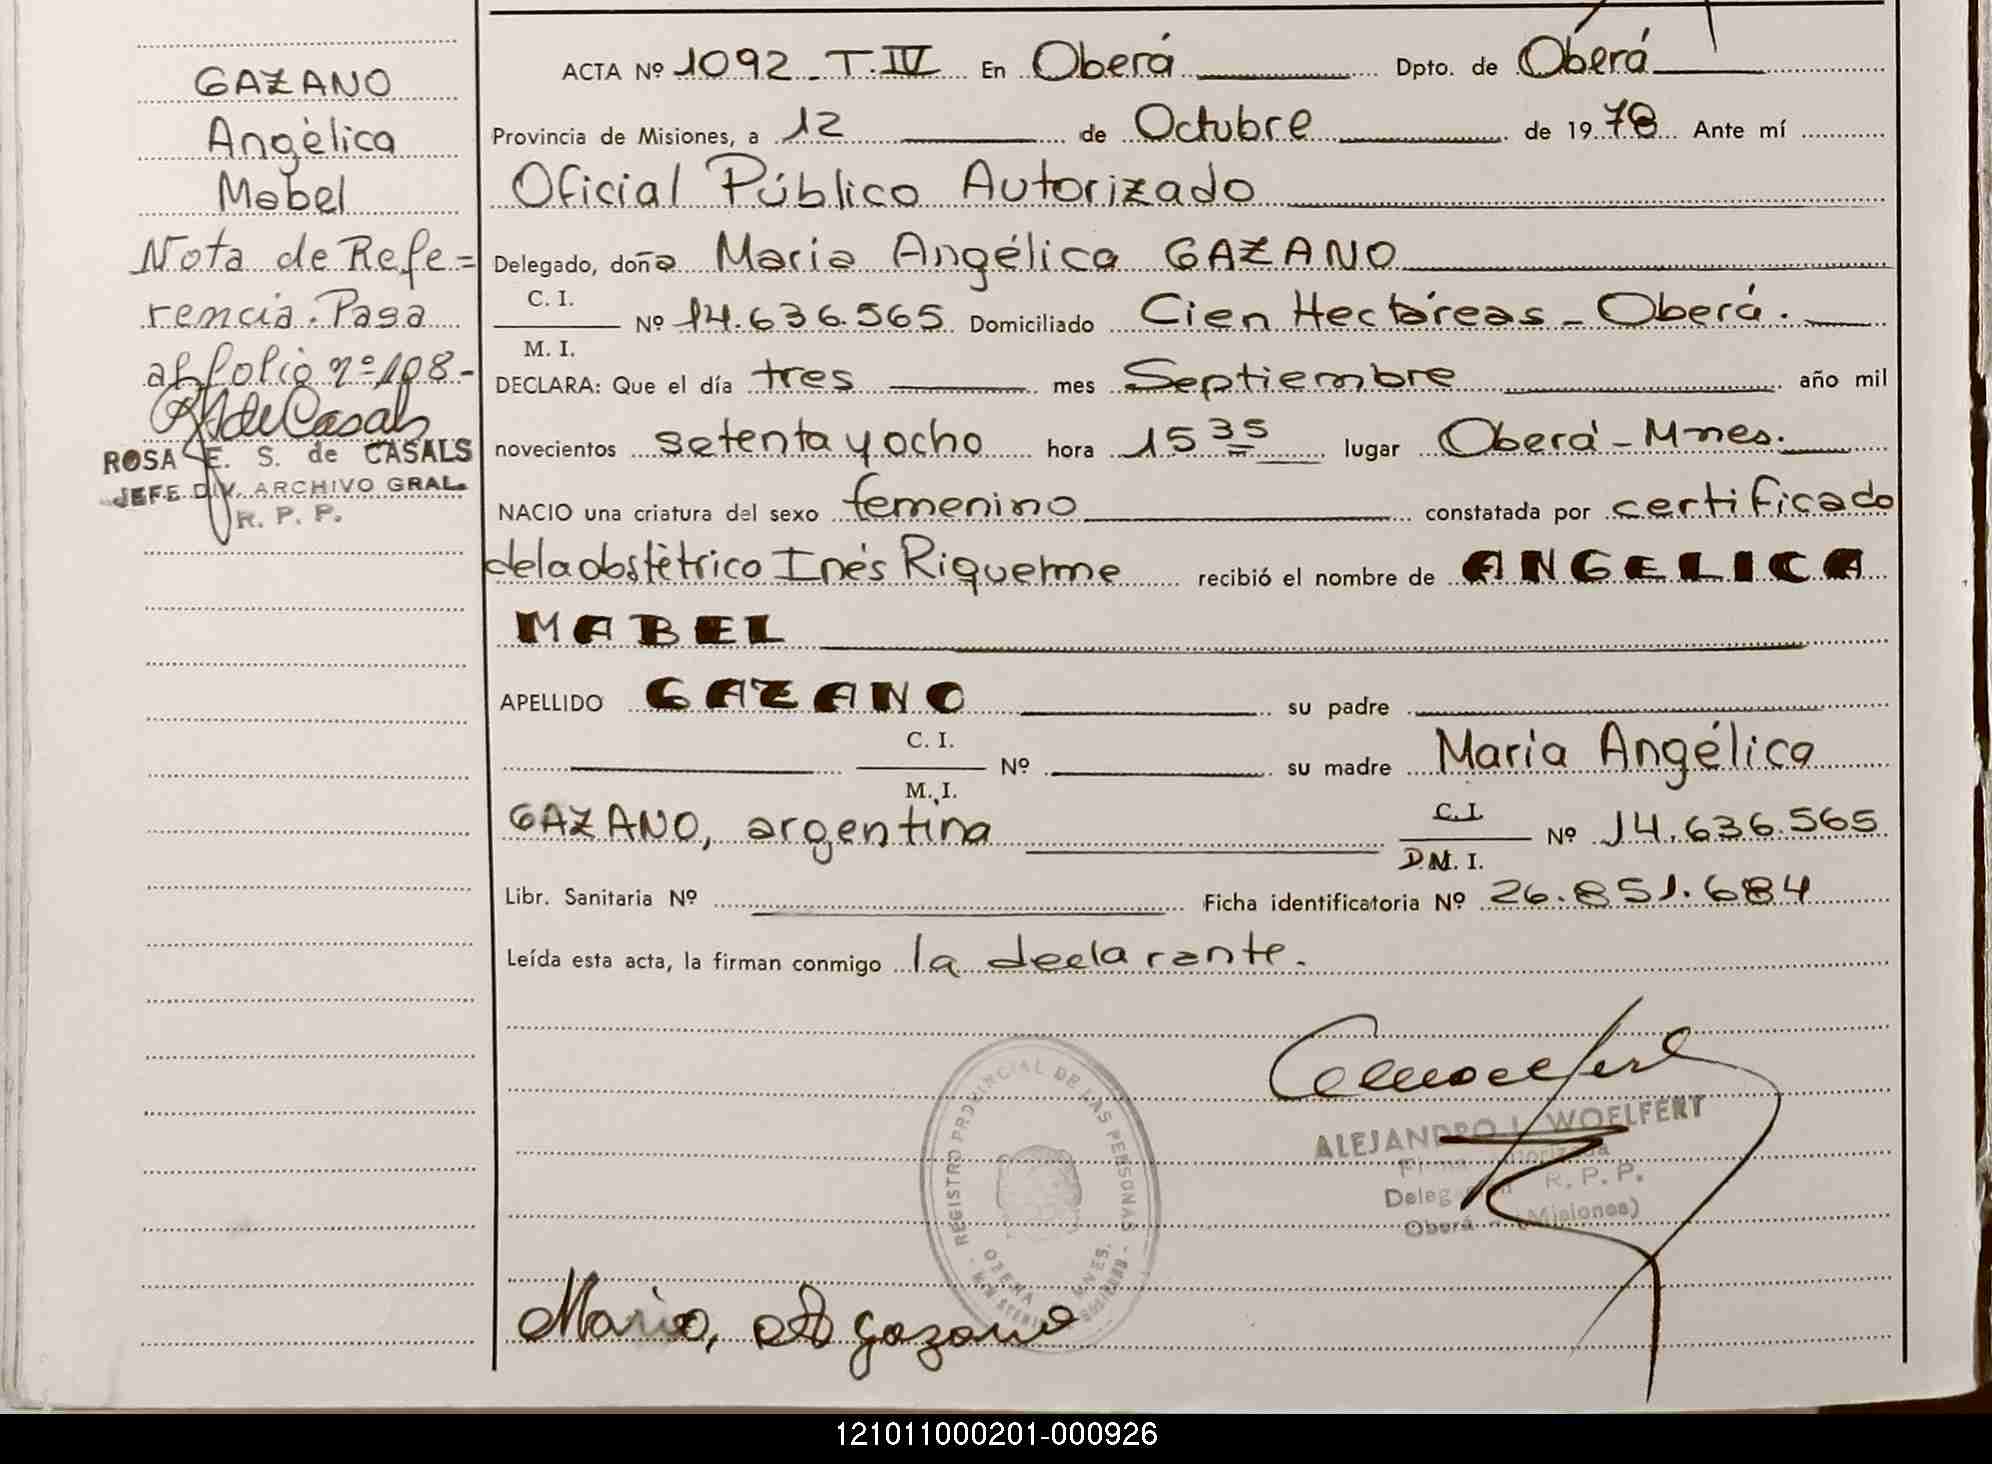 GAZANO
Angélica
Mabel
Nota de Refe=
rencia. Pasa
al folio nº 108-
ROSA E. S. de CASALS
JEFE DIV. ARCHIVO GRAL.
R. P. P.
ACTA Nº 1092 - T. IV En Oberá Dpto. de Oberá
Provincia de Misiones, a 12 de Octubre de 1978 Ante mí
Oficial Público Autorizado
Delegado, doña Maria Angélica GAZANO
C. I.
M. I.
Nº 14.636.565 Domiciliado Cien Hectáreas - Oberá.
DECLARA: Que el día tres mes Septiembre año mil
novecientos setenta y ocho hora 15 35 lugar Oberá - Mnes.
NACIO una criatura del sexo femenino constatada por certificado
de la obstétrico Inés Riquelme recibió el nombre de ANGELICA
MABEL
APELLIDO GAZANO su padre
C. I.
M. I.
Nº su madre Maria Angélica
GAZANO, argentina C. I. D.M. I. Nº 14.636.565
Libr. Sanitaria Nº Ficha identificatoria Nº 26.851.684
Leída esta acta, la firman conmigo la declarante.
REGISTRO PROVINCIAL DE LAS PERSONAS
OBERA MNES.
ALEJANDRO L. WOELFERT
Firma Autorizada
Delegación R. P. P.
Oberá - (Misiones)
Maria, A gazano
121011000201-000926